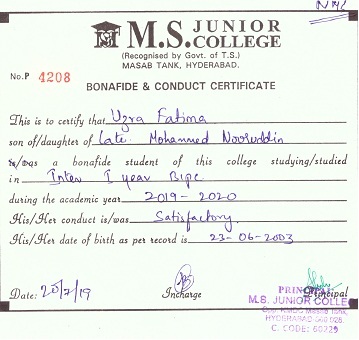 M.S. JUNIOR COLLEGE
(Recognised by Govt. of T.S.)
MASAB TANK, HYDERABAD.
No.P 4208
BONAFIDE & CONDUCT CERTIFICATE
This is to certify that Uzra Fatima
son of/daughter of Late. Mohammed Nooruddin
is/was a bonafide student of this college studying/studied
in Inter I year Bipc
during the academic year 2019 - 2020
His/Her conduct is/was Satisfactory.
His/Her date of birth as per record is 23-06-2003
Date: 20/7/19 Incharge Principal
PRINCIPAL
M.S. JUNIOR COLLE
Masab Tank,
HYDERABAD-500 028.
C. CODE: 60229